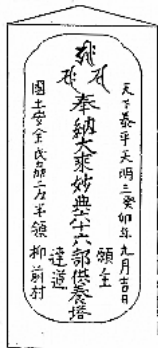 天下泰平天明三癸卯年九月吉日
奉納大乘妙典六十六部供養塔
願主
達道
國土安全武州二合半領 柳前村